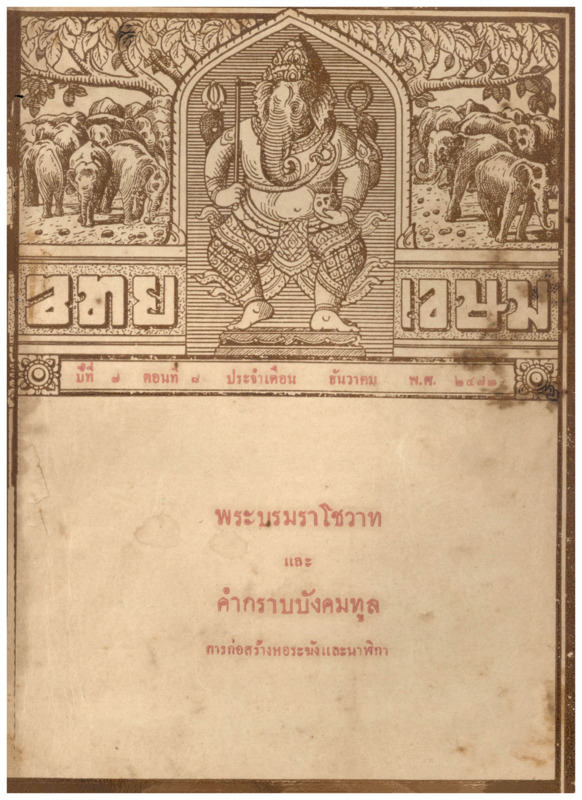 ไทย เขษม
ปีที่ ๗ ตอนที่ ๘ ประจำเดือน ธันวาคม พ.ศ. ๒๔๗๓
พระบรมราโชวาท
และ
คำกราบบังคมทูล
การก่อสร้างหอระฆังและนาฬิกา